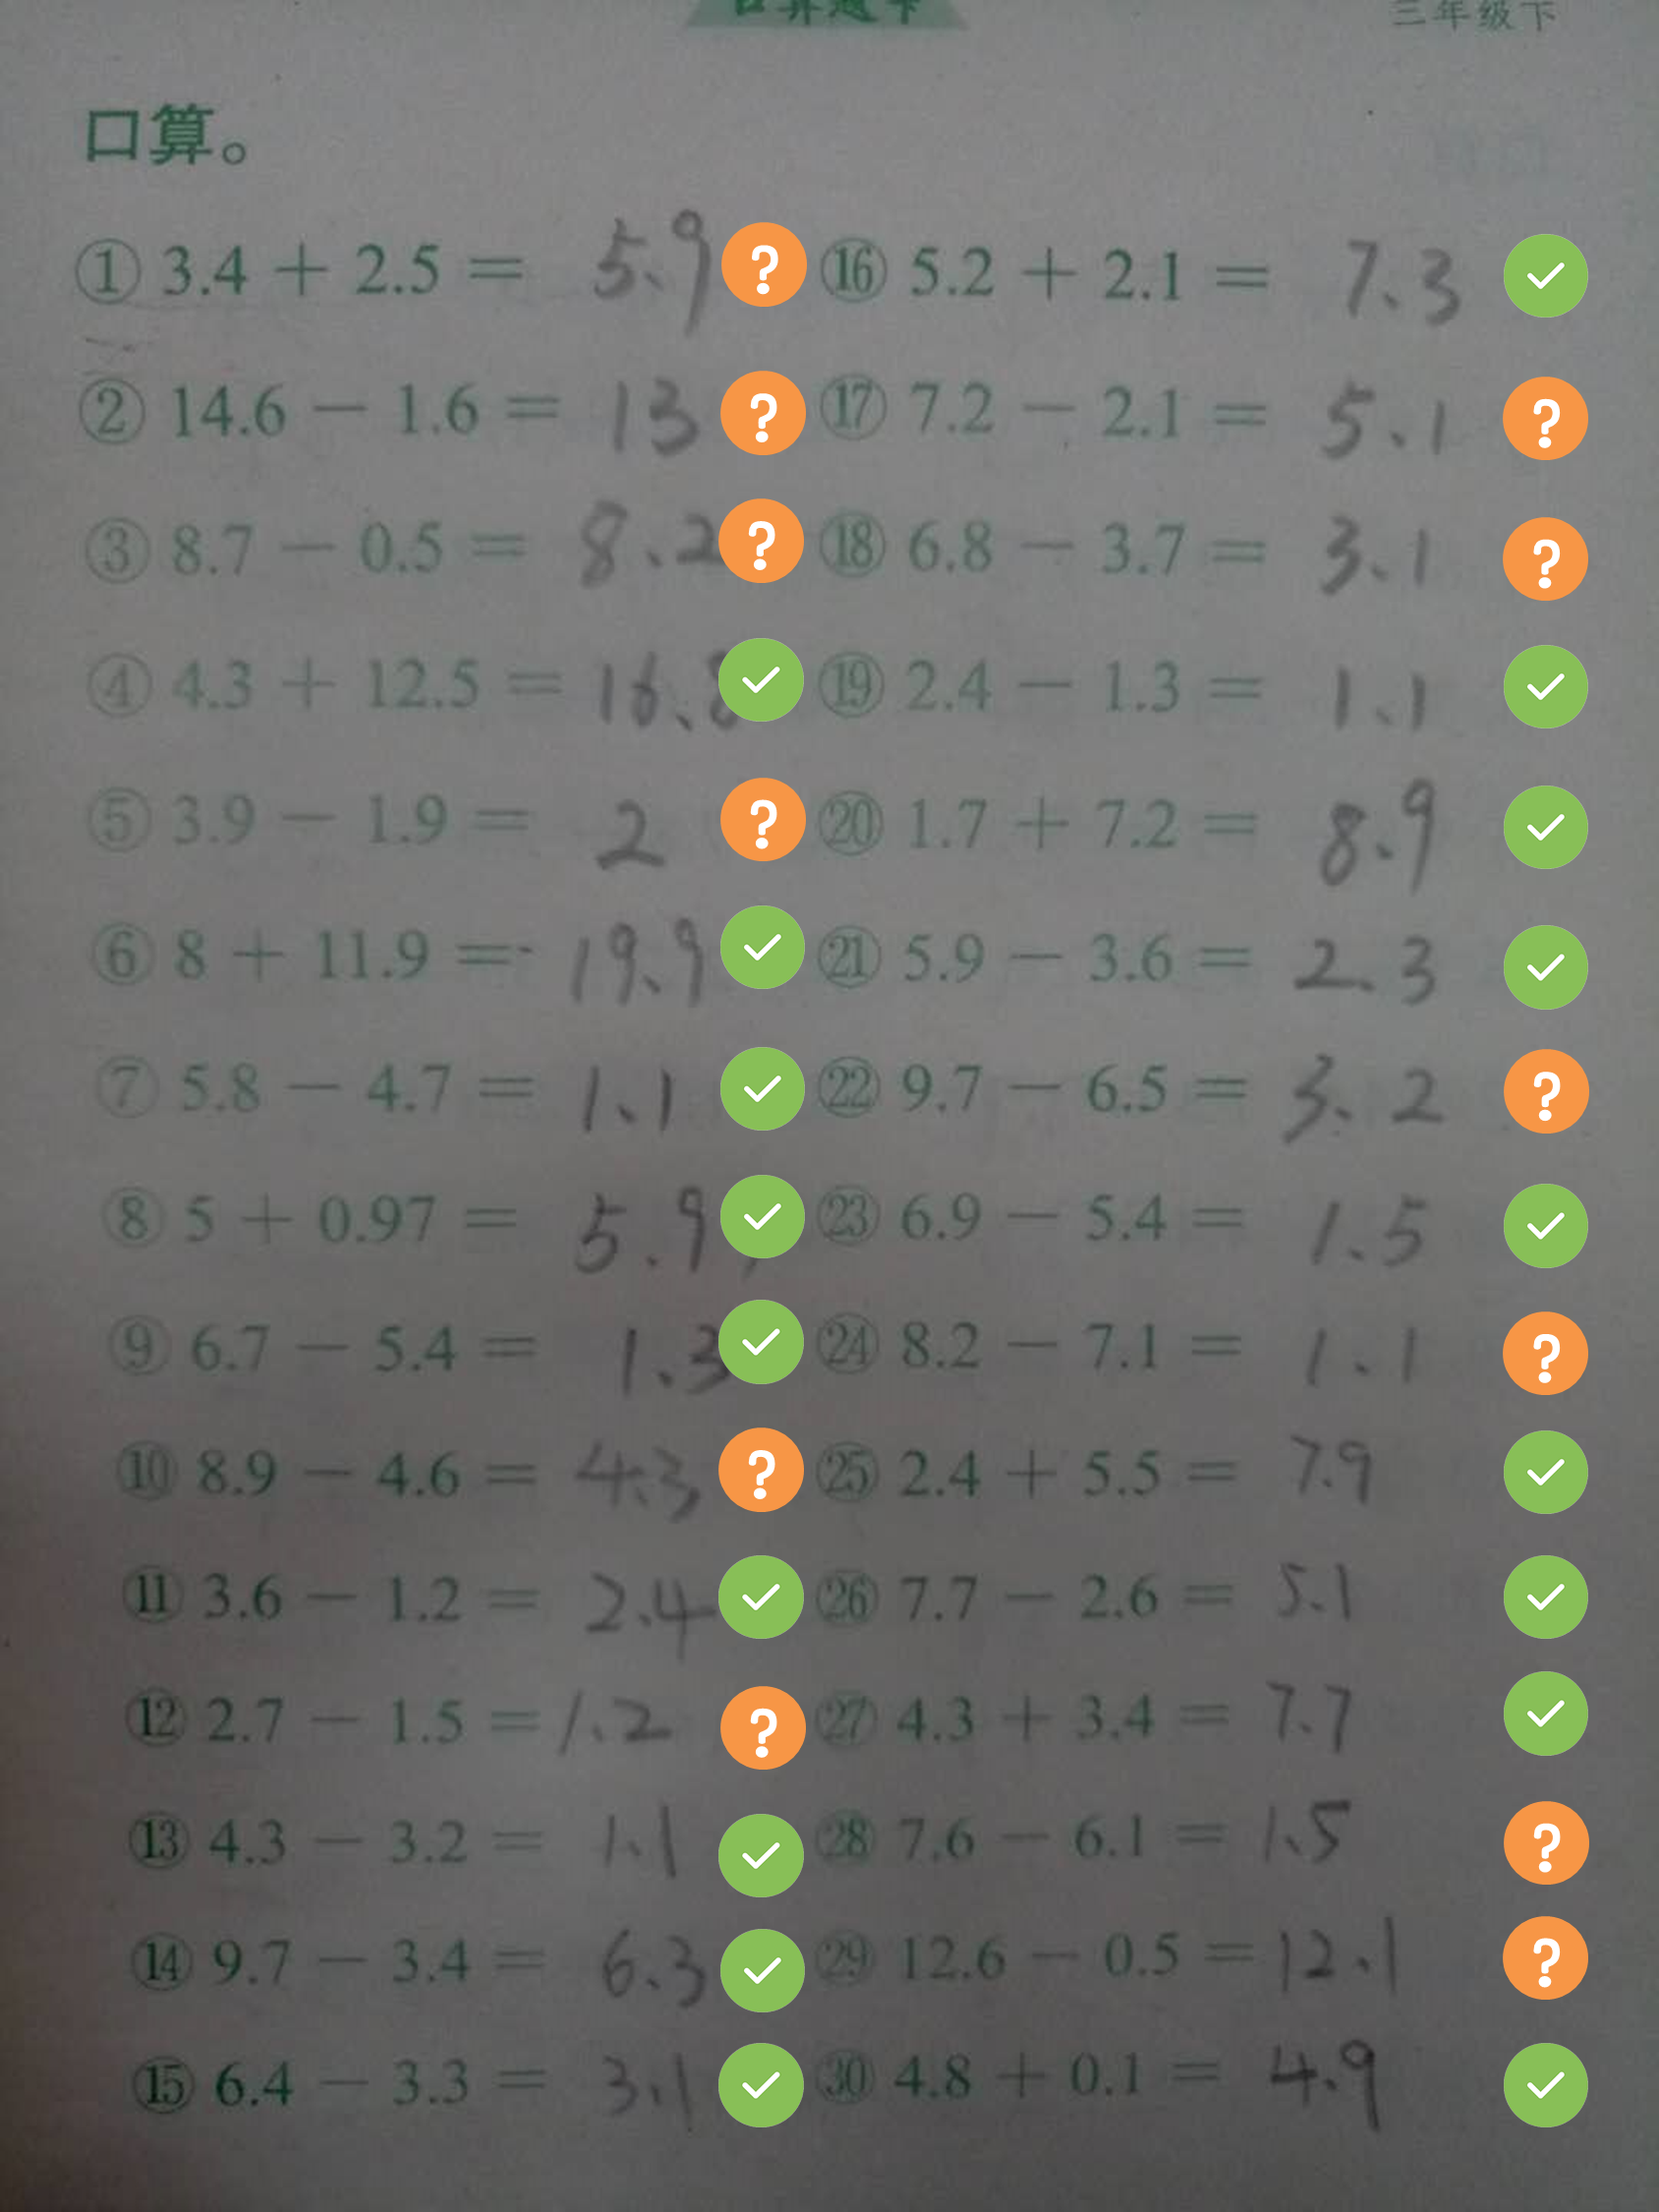 口算题卡
三年级下
口算。
① 3.4 + 2.5 = 5.9
② 14.6 - 1.6 = 13
③ 8.7 - 0.5 = 8.2
④ 4.3 + 12.5 = 16.8
⑤ 3.9 - 1.9 = 2
⑥ 8 + 11.9 = 19.9
⑦ 5.8 - 4.7 = 1.1
⑧ 5 + 0.97 = 5.9
⑨ 6.7 - 5.4 = 1.3
⑩ 8.9 - 4.6 = 4.3
⑪ 3.6 - 1.2 = 2.4
⑫ 2.7 - 1.5 = 1.2
⑬ 4.3 - 3.2 = 1.1
⑭ 9.7 - 3.4 = 6.3
⑮ 6.4 - 3.3 = 3.1
⑯ 5.2 + 2.1 = 7.3
⑰ 7.2 - 2.1 = 5.1
⑱ 6.8 - 3.7 = 3.1
⑲ 2.4 - 1.3 = 1.1
⑳ 1.7 + 7.2 = 8.9
㉑ 5.9 - 3.6 = 2.3
㉒ 9.7 - 6.5 = 3.2
㉓ 6.9 - 5.4 = 1.5
㉔ 8.2 - 7.1 = 1.1
㉕ 2.4 + 5.5 = 7.9
㉖ 7.7 - 2.6 = 5.1
㉗ 4.3 + 3.4 = 7.7
㉘ 7.6 - 6.1 = 1.5
㉙ 12.6 - 0.5 = 12.1
㉚ 4.8 + 0.1 = 4.9